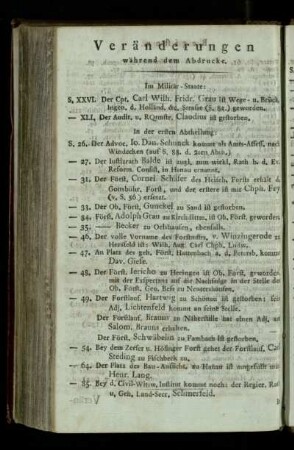 Veränderungen
während dem Abdrucke.
Im Militär-Staate:
S. XXVI. Der Cpt. Carl Wilh. Fridr. Gräu ist Wege- u. Brück
bigen. d. Holländ. &c. Straße (S. 92.) geworden.
— XLI. Der Audit. u. RQmstr. Claudius ist gestorben.
In der ersten Abtheilung:
S. 26. Der Advoc. Io. Dan. Schonck kommt als Amts-Assess. nach
Windecken (auf S. 28. d. 2ten Abth.)
— 27. Der Iustizrath Balde ist zugl. nun wirkl. Rath b. d. Ev.
Reform. Consist. in Hanau ernannt.
— 31. Der Först. Cornel. Schäfer des Fleisch. Försts erhält d.
Gonsbühr. Forst, und der erstere ist mit Chph. Frey
(v. S. 36) ersetzt.
— 33. Der Ob. Först. Gunckel zu Sand ist gestorben.
— 34. Först. Adolph Grau zu Kirchditm. ist Ob. Först. geworden
— 35. — Becker zu Oelshausen, ebenfalls.
— 46. Der volle Vorname des Forstmstrs. v. Wintzingerode zu
Hersfeld ist: Wilh. Aug. Carl Chph. Ludw.
— 47. An Platz des geh. Först. Hattenbach a. d. Petersb. kommt
Dav. Giese.
— 48. Der Först. Iericho zu Heringen ist Ob. Först. geworden
mit der Exspectanz auf die Nachfolge in der Stelle des
Ob. Först. Gro. Reis zu Neuenthausen.
— 49. Der Forstlauf. Hartwig zu Schönau ist gestorben; sein
Adj. Lichtenfeld kommt an seine Stelle.
Der Forstlauf. Brauns zu Näherstille hat einen Adj. an
Salom. Brauns erhalten.
Der Först. Schwäbelin zu Fambach ist gestorben.
— 54. Bey dem Zerser u. Höfinger Forst gehet der Forstlauf. Car
Steding zu Fischbeck zu.
— 64. Der Platz des Bau-Aufseht. zu Hanau ist ausgefüllt mit
Henr. Lang.
— 85. Bey d. Civil-Witw. Institut kommt noch: der Regier. Rath
u. Geh. Land-Secr. Schmerfeld.